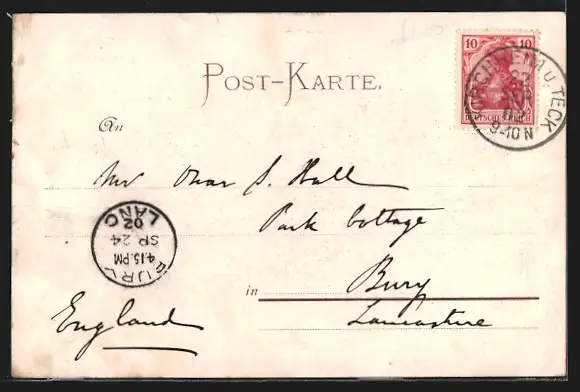 10 10
DEUTSCHES REICH
POST-KARTE.
9-10 N
An
Mr Oscar S. Hall
Park Cottage
BURY
4.15.PM
SP 24
02
LANC
in Bury
Lancashire
England